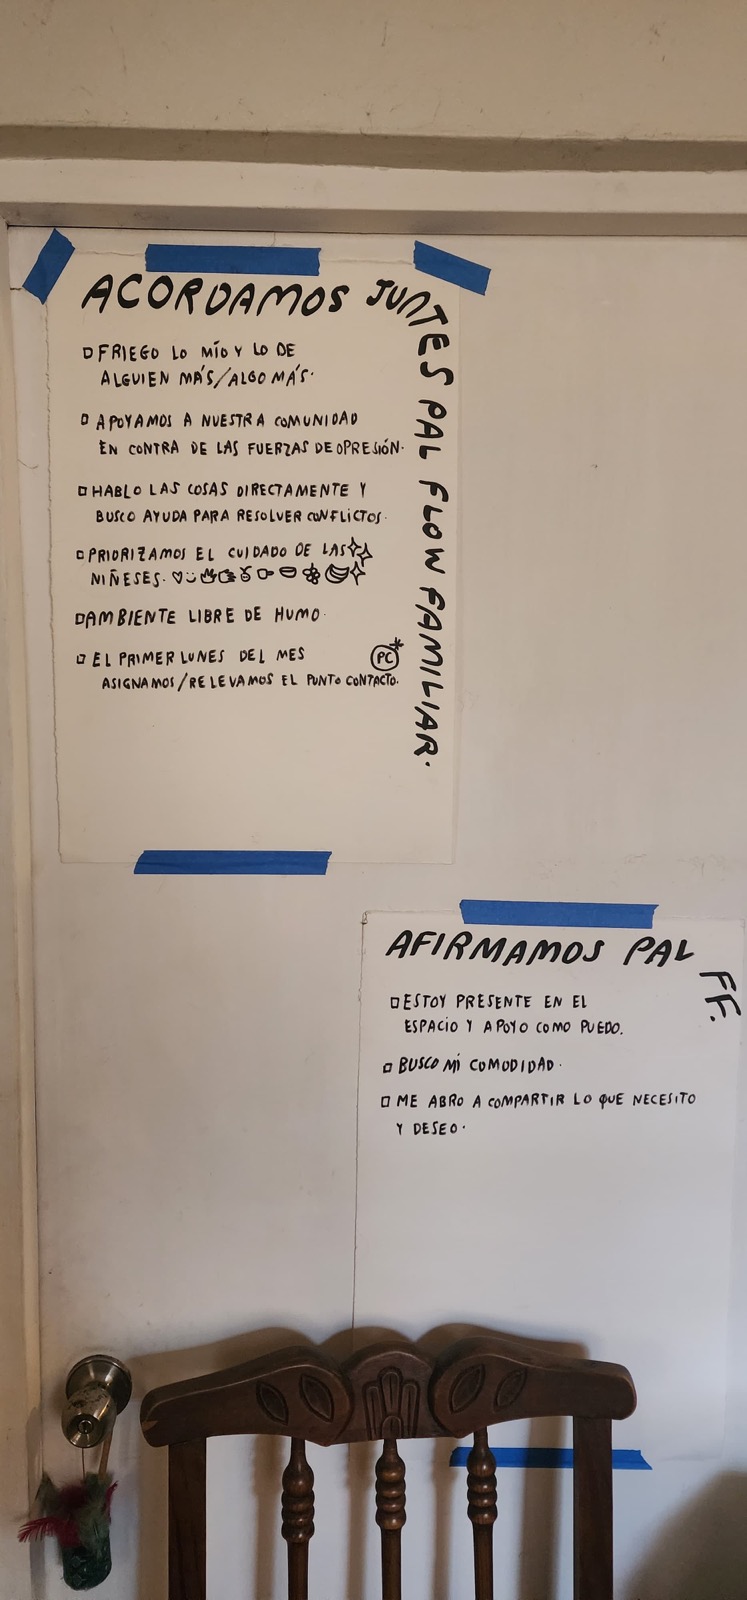 ACORDAMOS JUNTES PAL FLOW FAMILIAR.
□ FRIEGO LO MÍO Y LO DE
ALGUIEN MÁS/ALGO MÁS.
□ APOYAMOS A NUESTRA COMUNIDAD
EN CONTRA DE LAS FUERZAS DE OPRESIÓN.
□ HABLO LAS COSAS DIRECTAMENTE Y
BUSCO AYUDA PARA RESOLVER CONFLICTOS.
□ PRIORIZAMOS EL CUIDADO DE LAS
NIÑESES.
□ AMBIENTE LIBRE DE HUMO.
□ EL PRIMER LUNES DEL MES
PC*
ASIGNAMOS/RELEVAMOS EL PUNTO CONTACTO.
AFIRMAMOS PAL FF.
□ ESTOY PRESENTE EN EL
ESPACIO Y APOYO COMO PUEDO.
□ BUSCO MI COMODIDAD.
□ ME ABRO A COMPARTIR LO QUE NECESITO
Y DESEO.